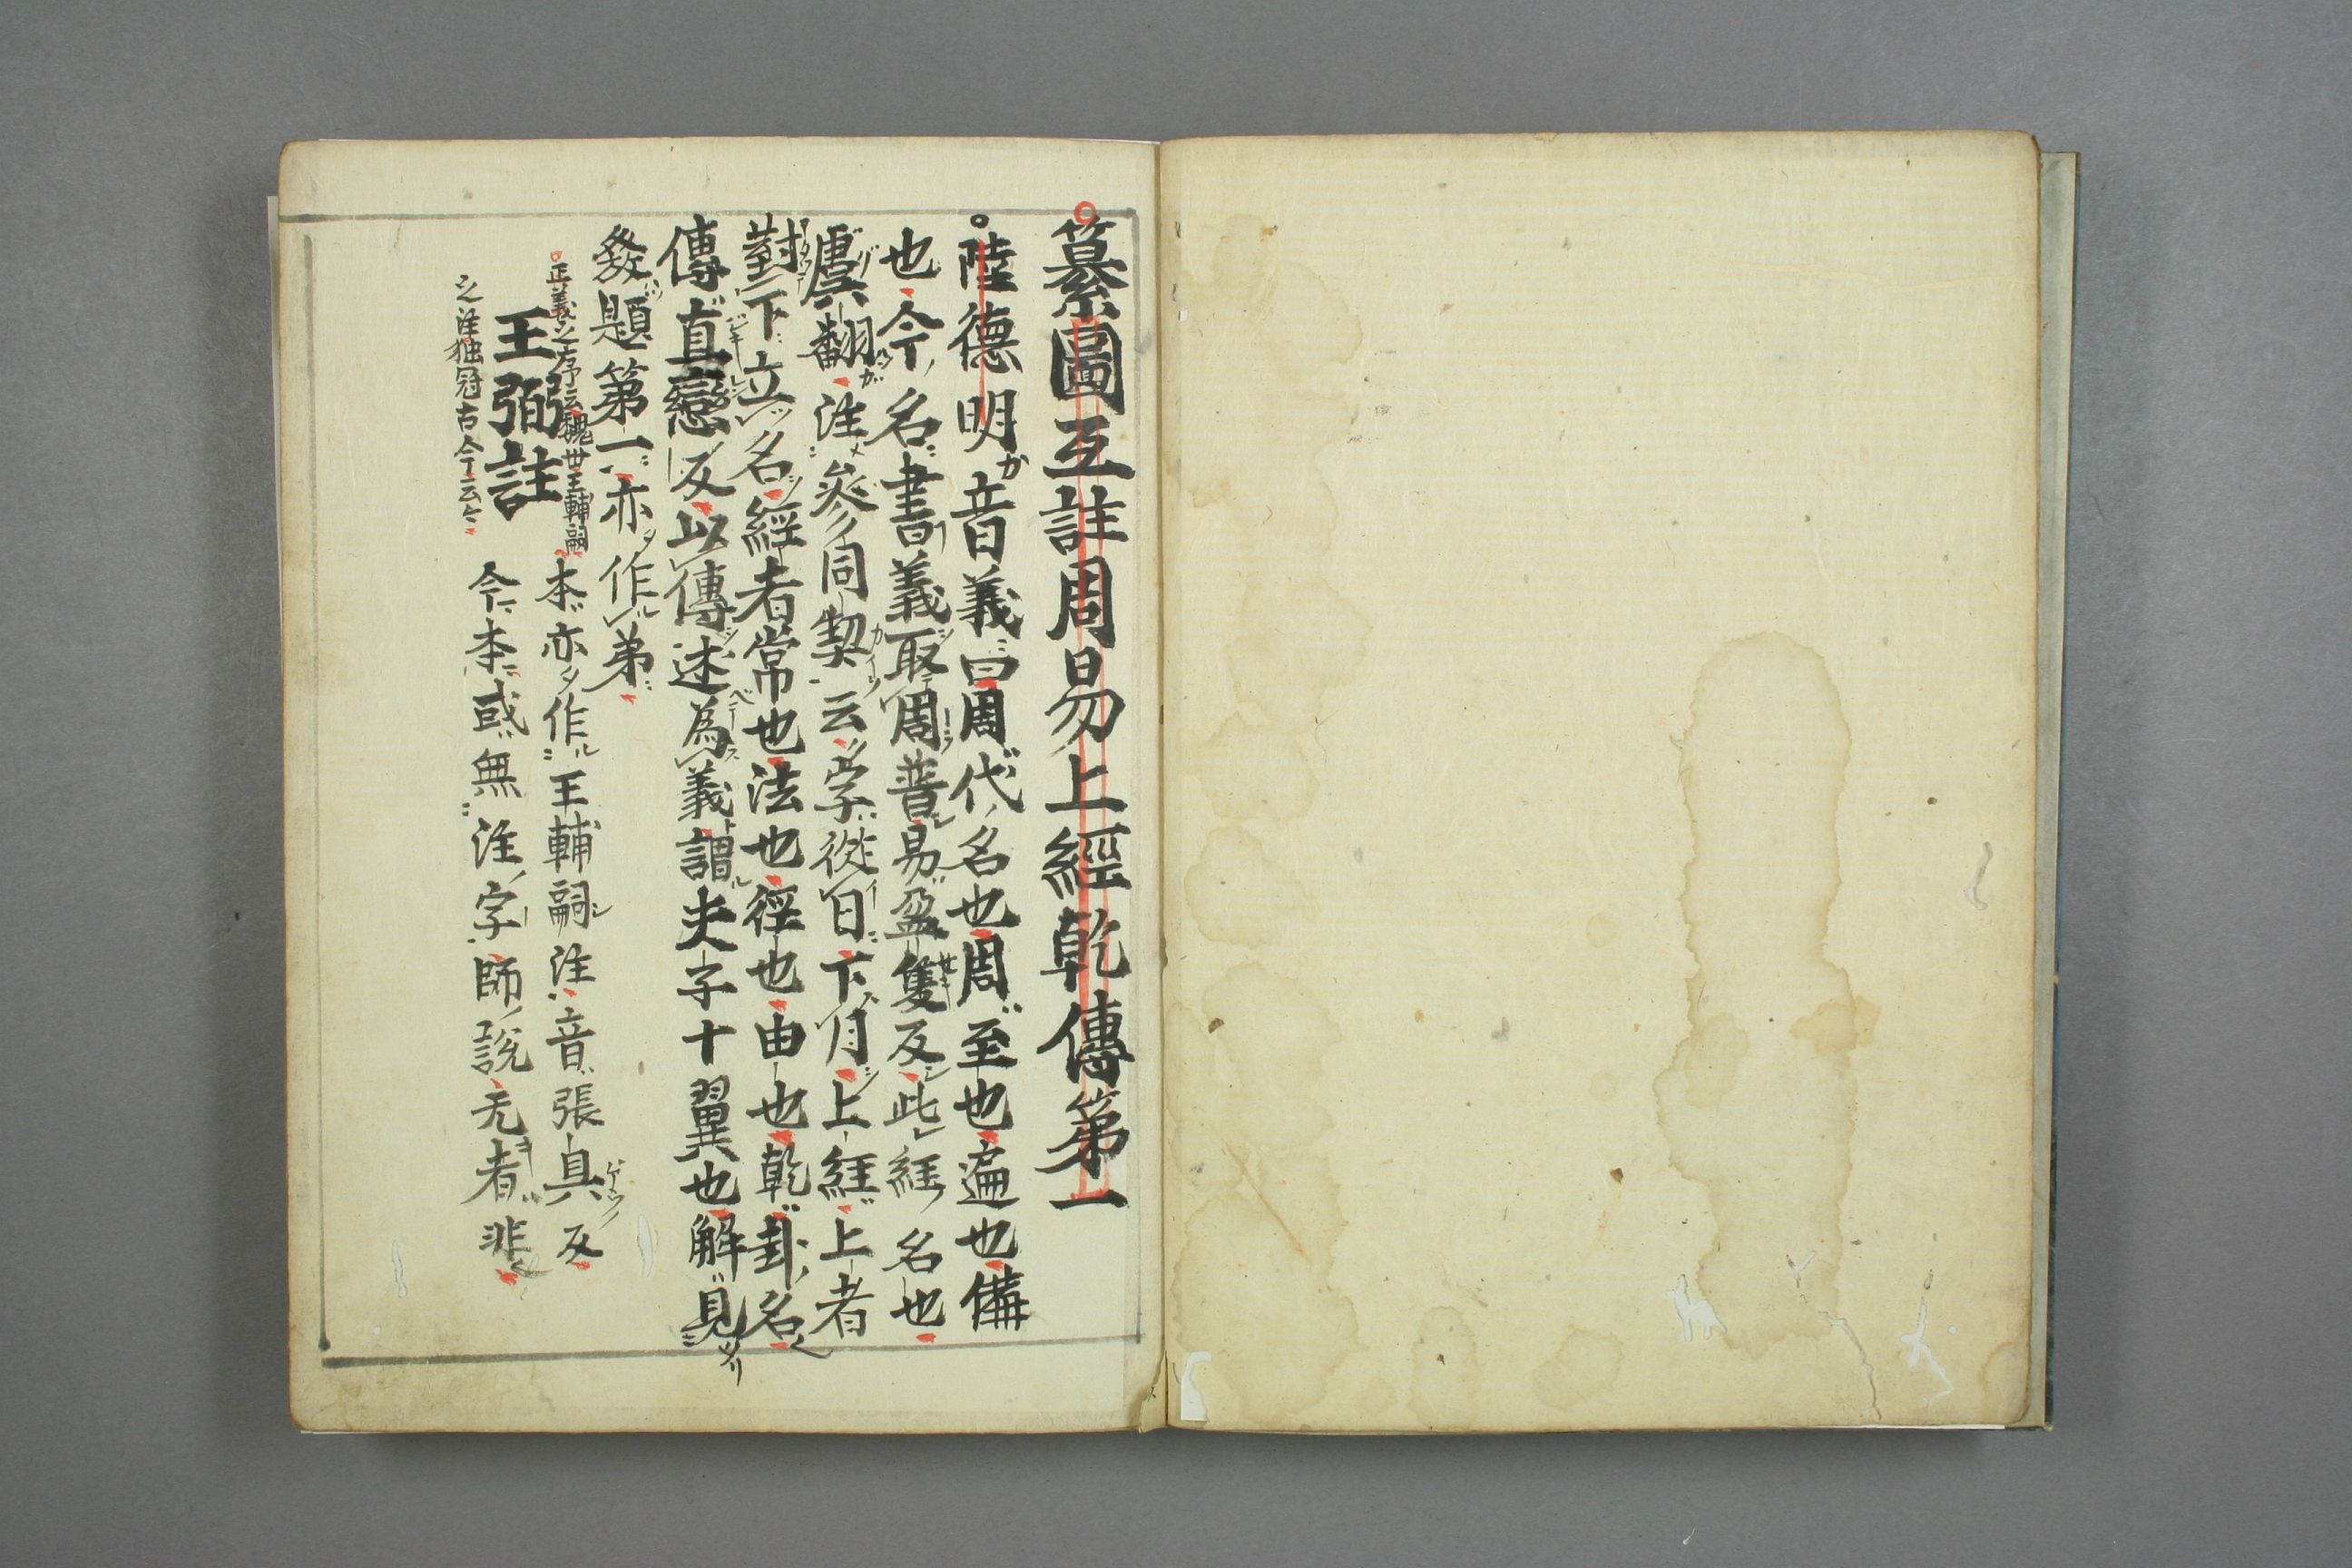 纂圖互註周易上經乾傳第一
陸德明音義曰周代名也周至也遍也備
也今名書義取周普易盈隻反此経名也
虞翻注參同契云字從日下月上経上者
對下立名經者常也法也徑也由也乾卦名
傳直戀反以傳述為義謂夫子十翼也解見
發題第一亦作弟
正義之序云魏世王輔嗣
王弼註
之注独冠古今云々
本亦作王輔嗣注音張具反
今本或無注字師說无者非